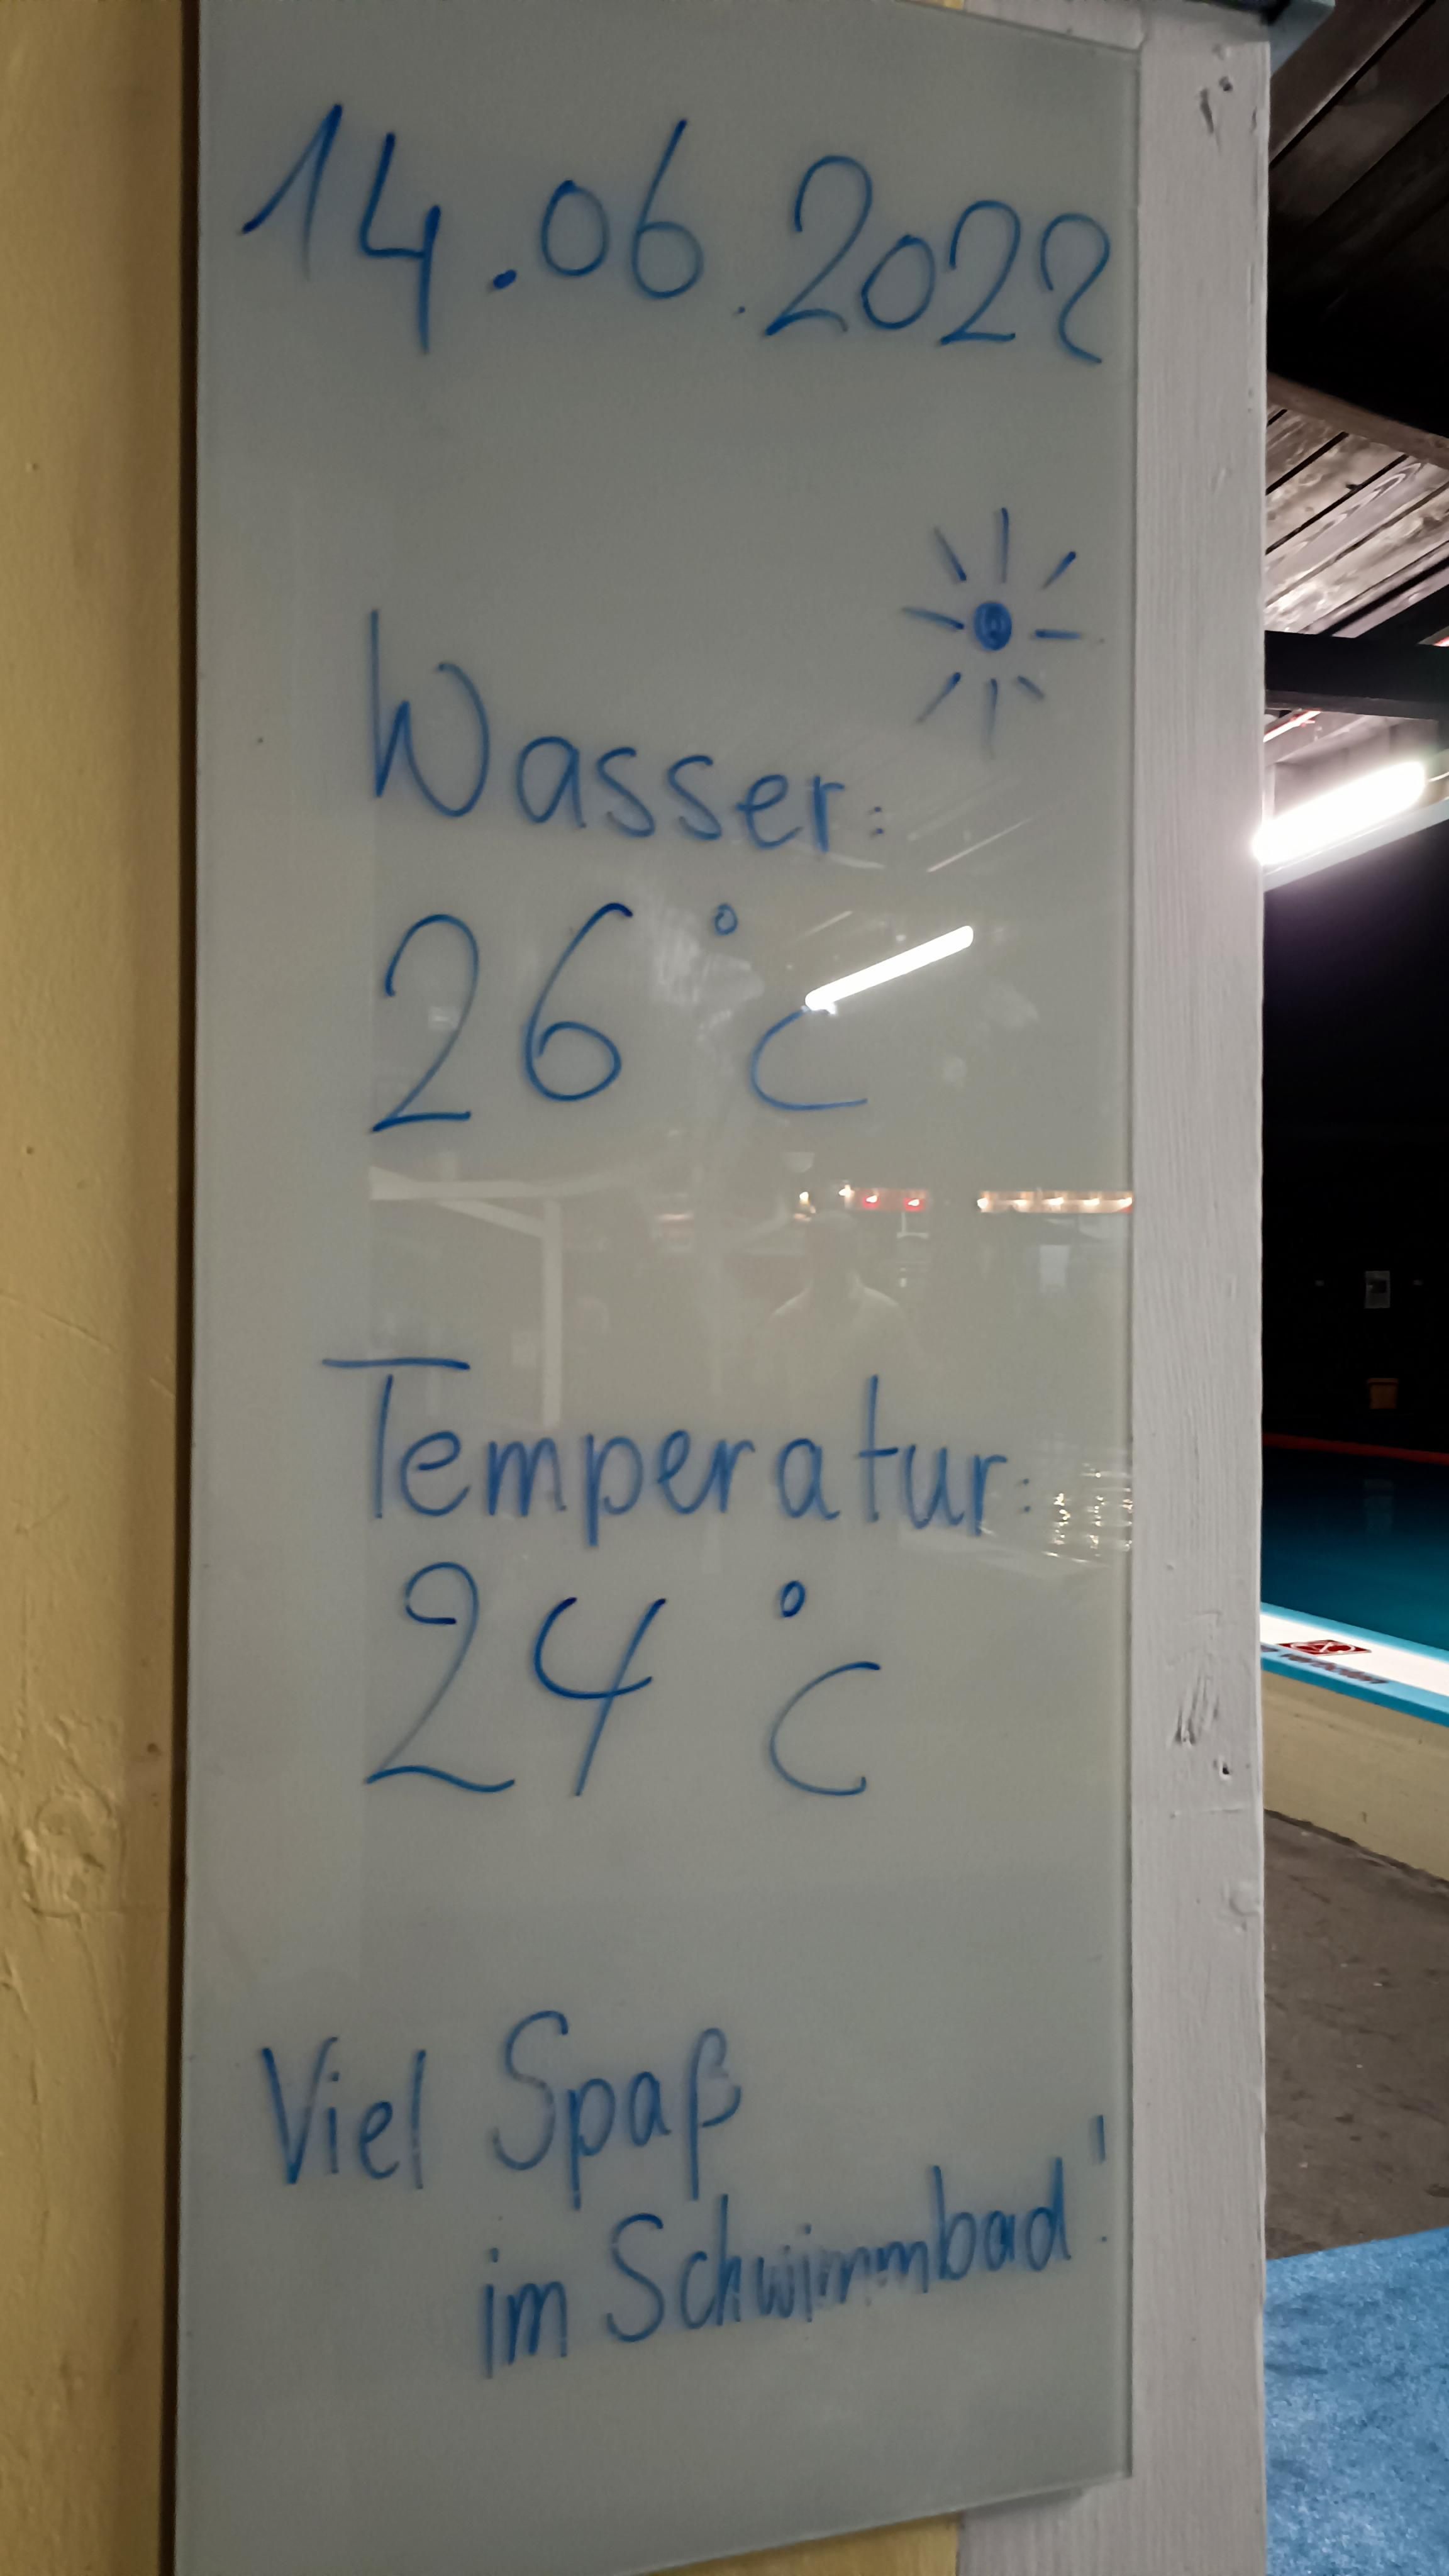 14.06.2022
Wasser:
26°C
Temperatur:
24°C
Viel Spaß
im Schwimmbad!